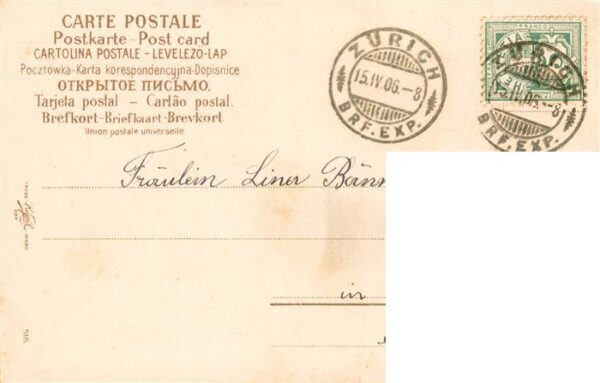 CARTE POSTALE
Postkarte-Post card
CARTOLINA POSTALE - LEVELEZŐ-LAP
Pocztówka-Karta korespondencyjna-Dopisnice
ОТКРЫТОЕ ПИСЬМО.
Tarjeta postal - Cartão postal.
Brefkort-Briefkaart-Brevkort
Union postale universelle
ZÜRICH
15.IV.06.-8
BRF.EXP.
ZÜRICH
15.IV.06.-8
BRF.EXP.
Fräulein Liner
in